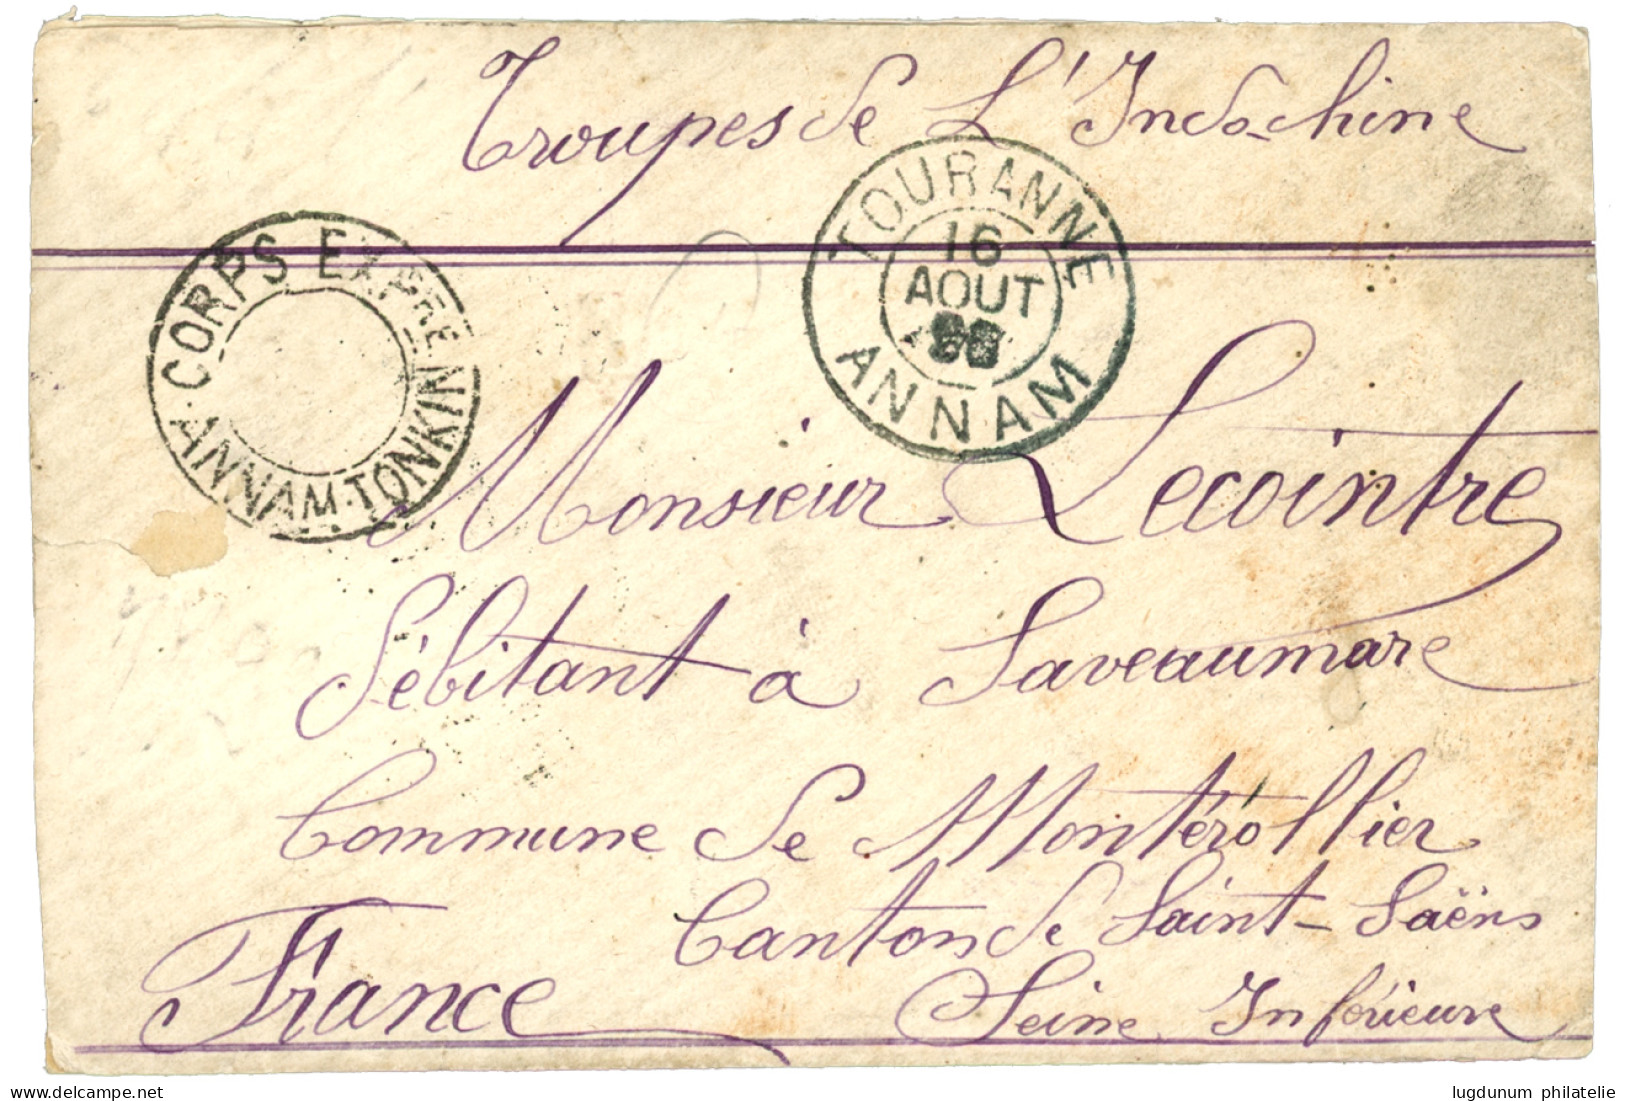 Troupes de L'Indo-chine
TOURANNE
16
AOUT
ANNAM
CORPS EXPRE
ANNAM-TONKIN
Monsieur Lecointre
Débitant à Saveaumare
Commune de Montérollier
Canton de Saint-Saëns
France
Seine Inférieure
delcampe.net
lugdunum philatelie